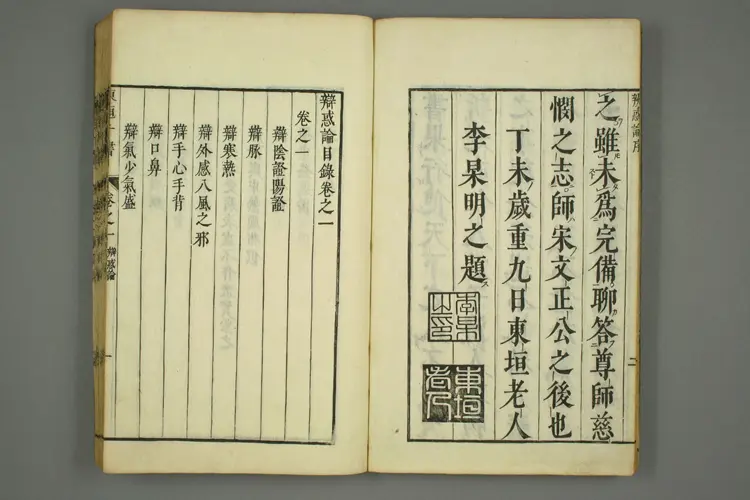 辨惑論序
之雖未爲完備聊答尊師慈
憫之志師宋文正公之後也
丁未歲重九日東垣老人
李杲明之題
東垣
老人
二
辯惑論目錄卷之一
卷之一
辯陰證陽證
辯脉
辯寒熱
辯外感八風之邪
辯手心手背
辯口鼻
辯氣少氣盛
卷之一
辯惑論
一